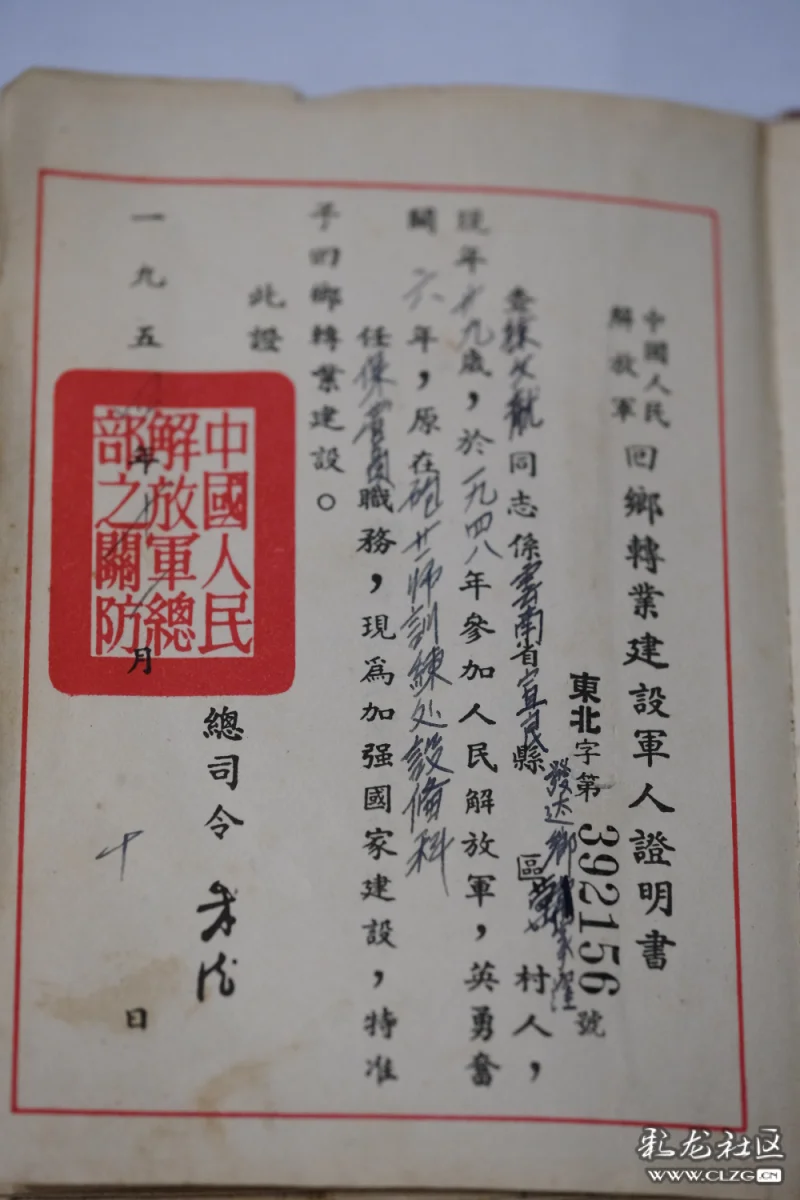 中國人民
解放軍
回鄉轉業建設軍人證明書
東北字第392156號
查 同志係雲南省宜良縣 區 村人，
發达鄉
現年 九歲，於一九四八年參加人民解放軍，英勇奮
鬭六年，原在砲廿一師訓練处設備科
任保管員職務，現爲加强國家建設，特准
予回鄉轉業建設。
此證
總司令 朱德
一九五 年 月 十 日
中國人民
解放軍總
部之關防
彩龙社区
WWW.CLZG.CN